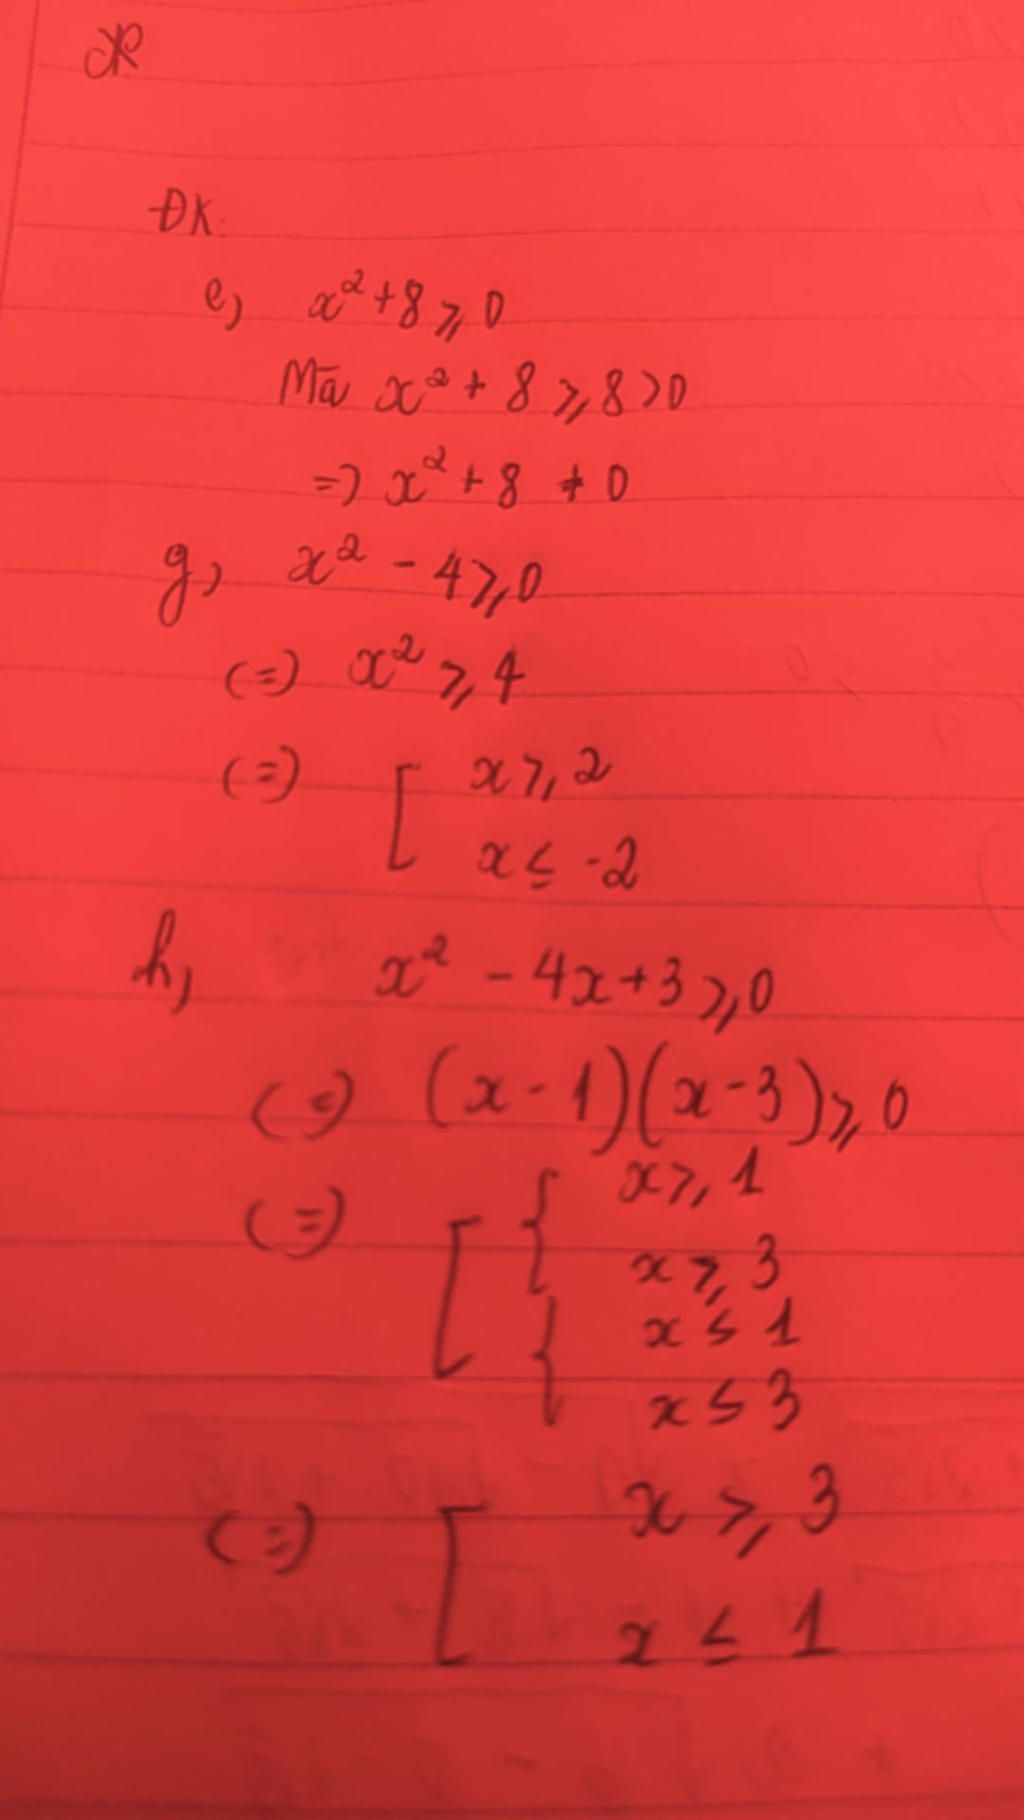 ĐK:
e, x² + 8 ⩾ 0
Mà x² + 8 ⩾ 8 > 0
=> x² + 8 ≠ 0
g, x² - 4 ⩾ 0
(=) x² ⩾ 4
(=) [ x ⩾ 2
x ≤ -2
h, x² - 4x + 3 ⩾ 0
(=) (x - 1)(x - 3) ⩾ 0
(=) [ { x ⩾ 1
x ⩾ 3
{ x ≤ 1
x ≤ 3
(=) [ x ⩾ 3
x ≤ 1